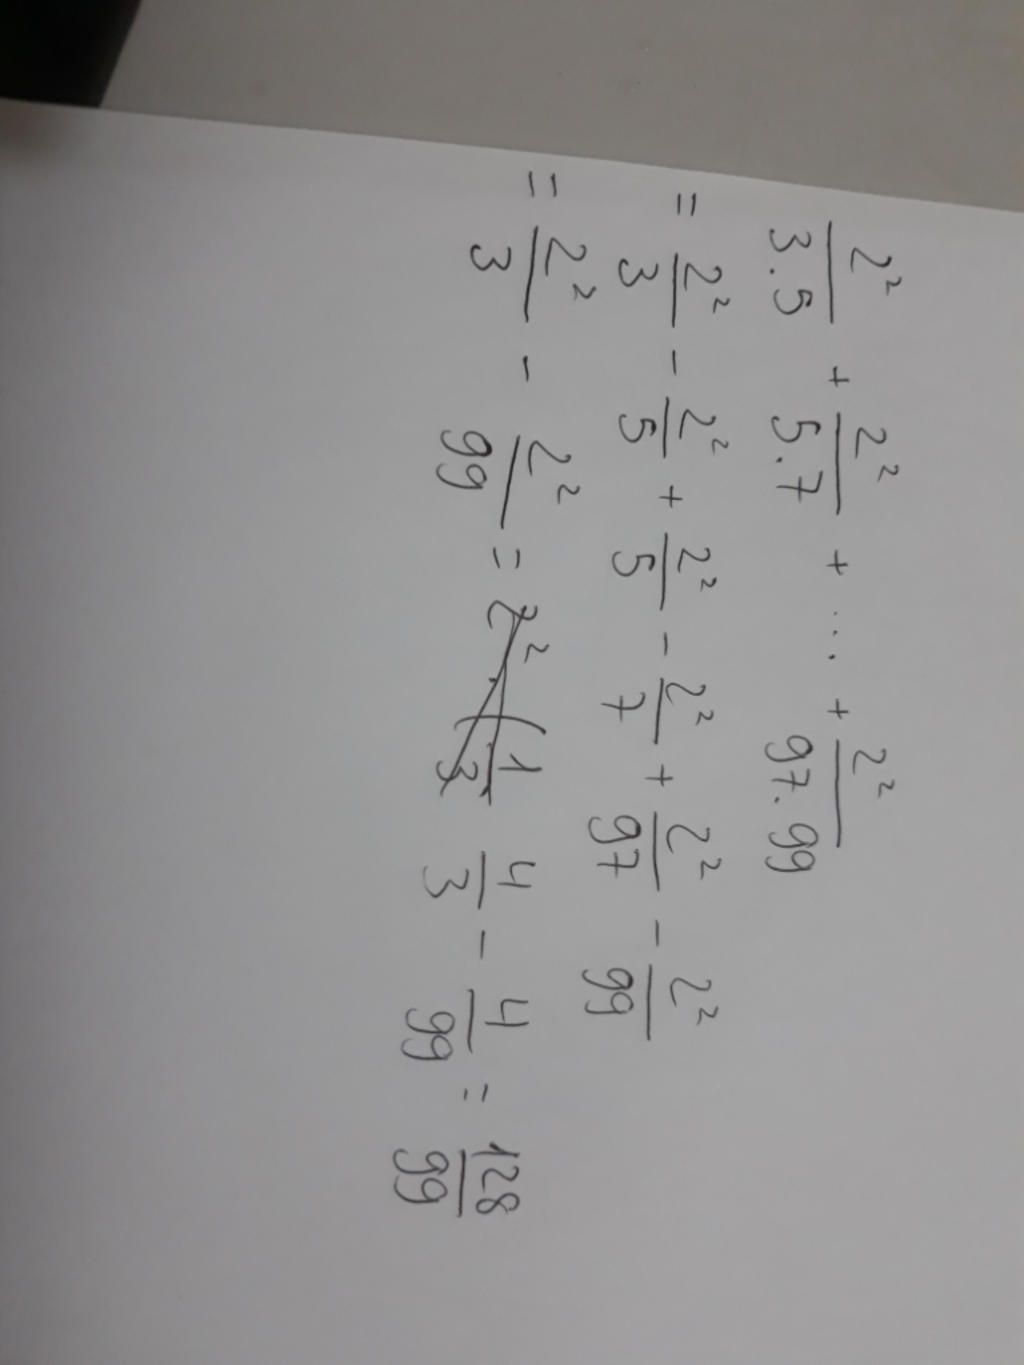 2²/3.5 + 2²/5.7 + ... + 2²/97.99
= 2²/3 - 2²/5 + 2²/5 - 2²/7 + 2²/97 - 2²/99
= 2²/3 - 2²/99 = 2² . ( 1/3 4/3 - 4/99 = 128/99